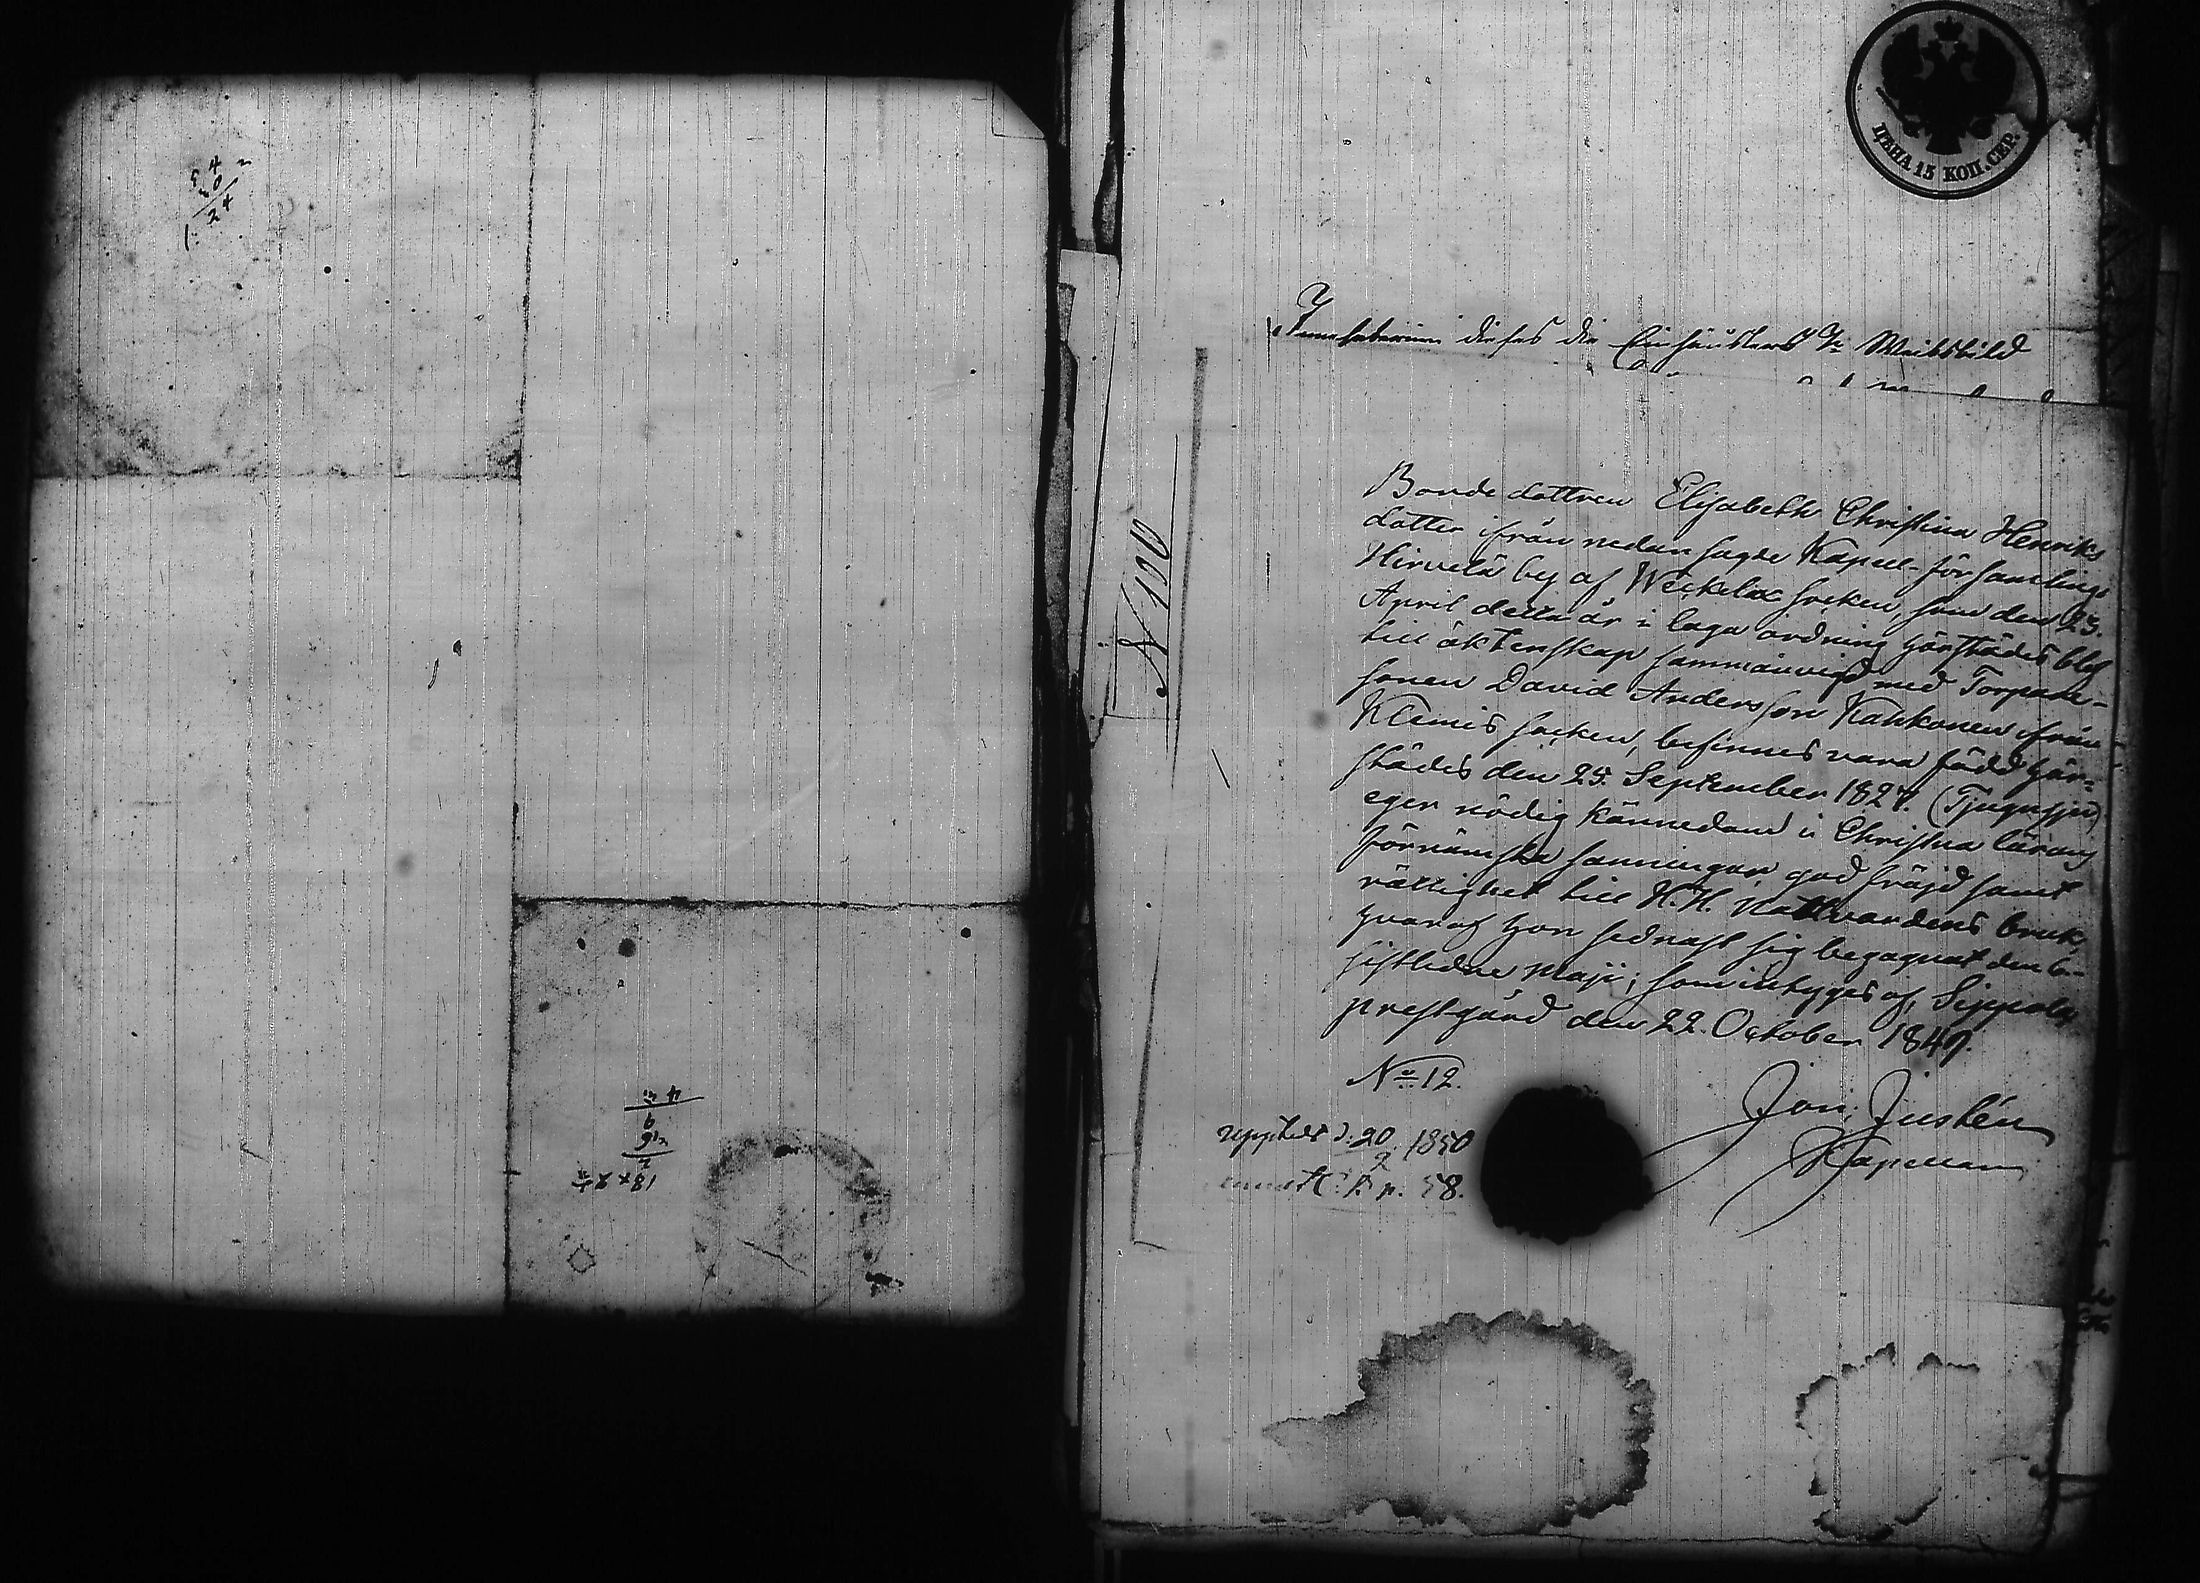 4
20
24
ЦѢНА 15 КОП. СЕР.
Innhaberin dieses die Einhäuslers Weibsbild
N 100
Bondedottren Elisabeth Christina Henriks
dotter ifrån nedansagde Kapell-församlings
Hirvelä by af Weckelax socken, som den 23.
April detta år i laga ordning härstädes blef
till äktenskap sammanvigd med Torpare-
sonen David Andersson Kahkonen ifrån
Klemis socken, befinnes vara född här-
städes den 25. September 1827. (Tjugusju)
eger nödig kännedom i Christna lärans
förnämsta sanningar, god fräjd samt
rättighet till H. H. Nattvardens bruk,
hvaraf hon sednast sig begagnat den 6.
sistledne Maji; som intygas af, Sippola
prestgård den 22. October 1849.
No 12.
Jon. Justén
Kapellan
uppteds d. 20/2 1850
p. 58.